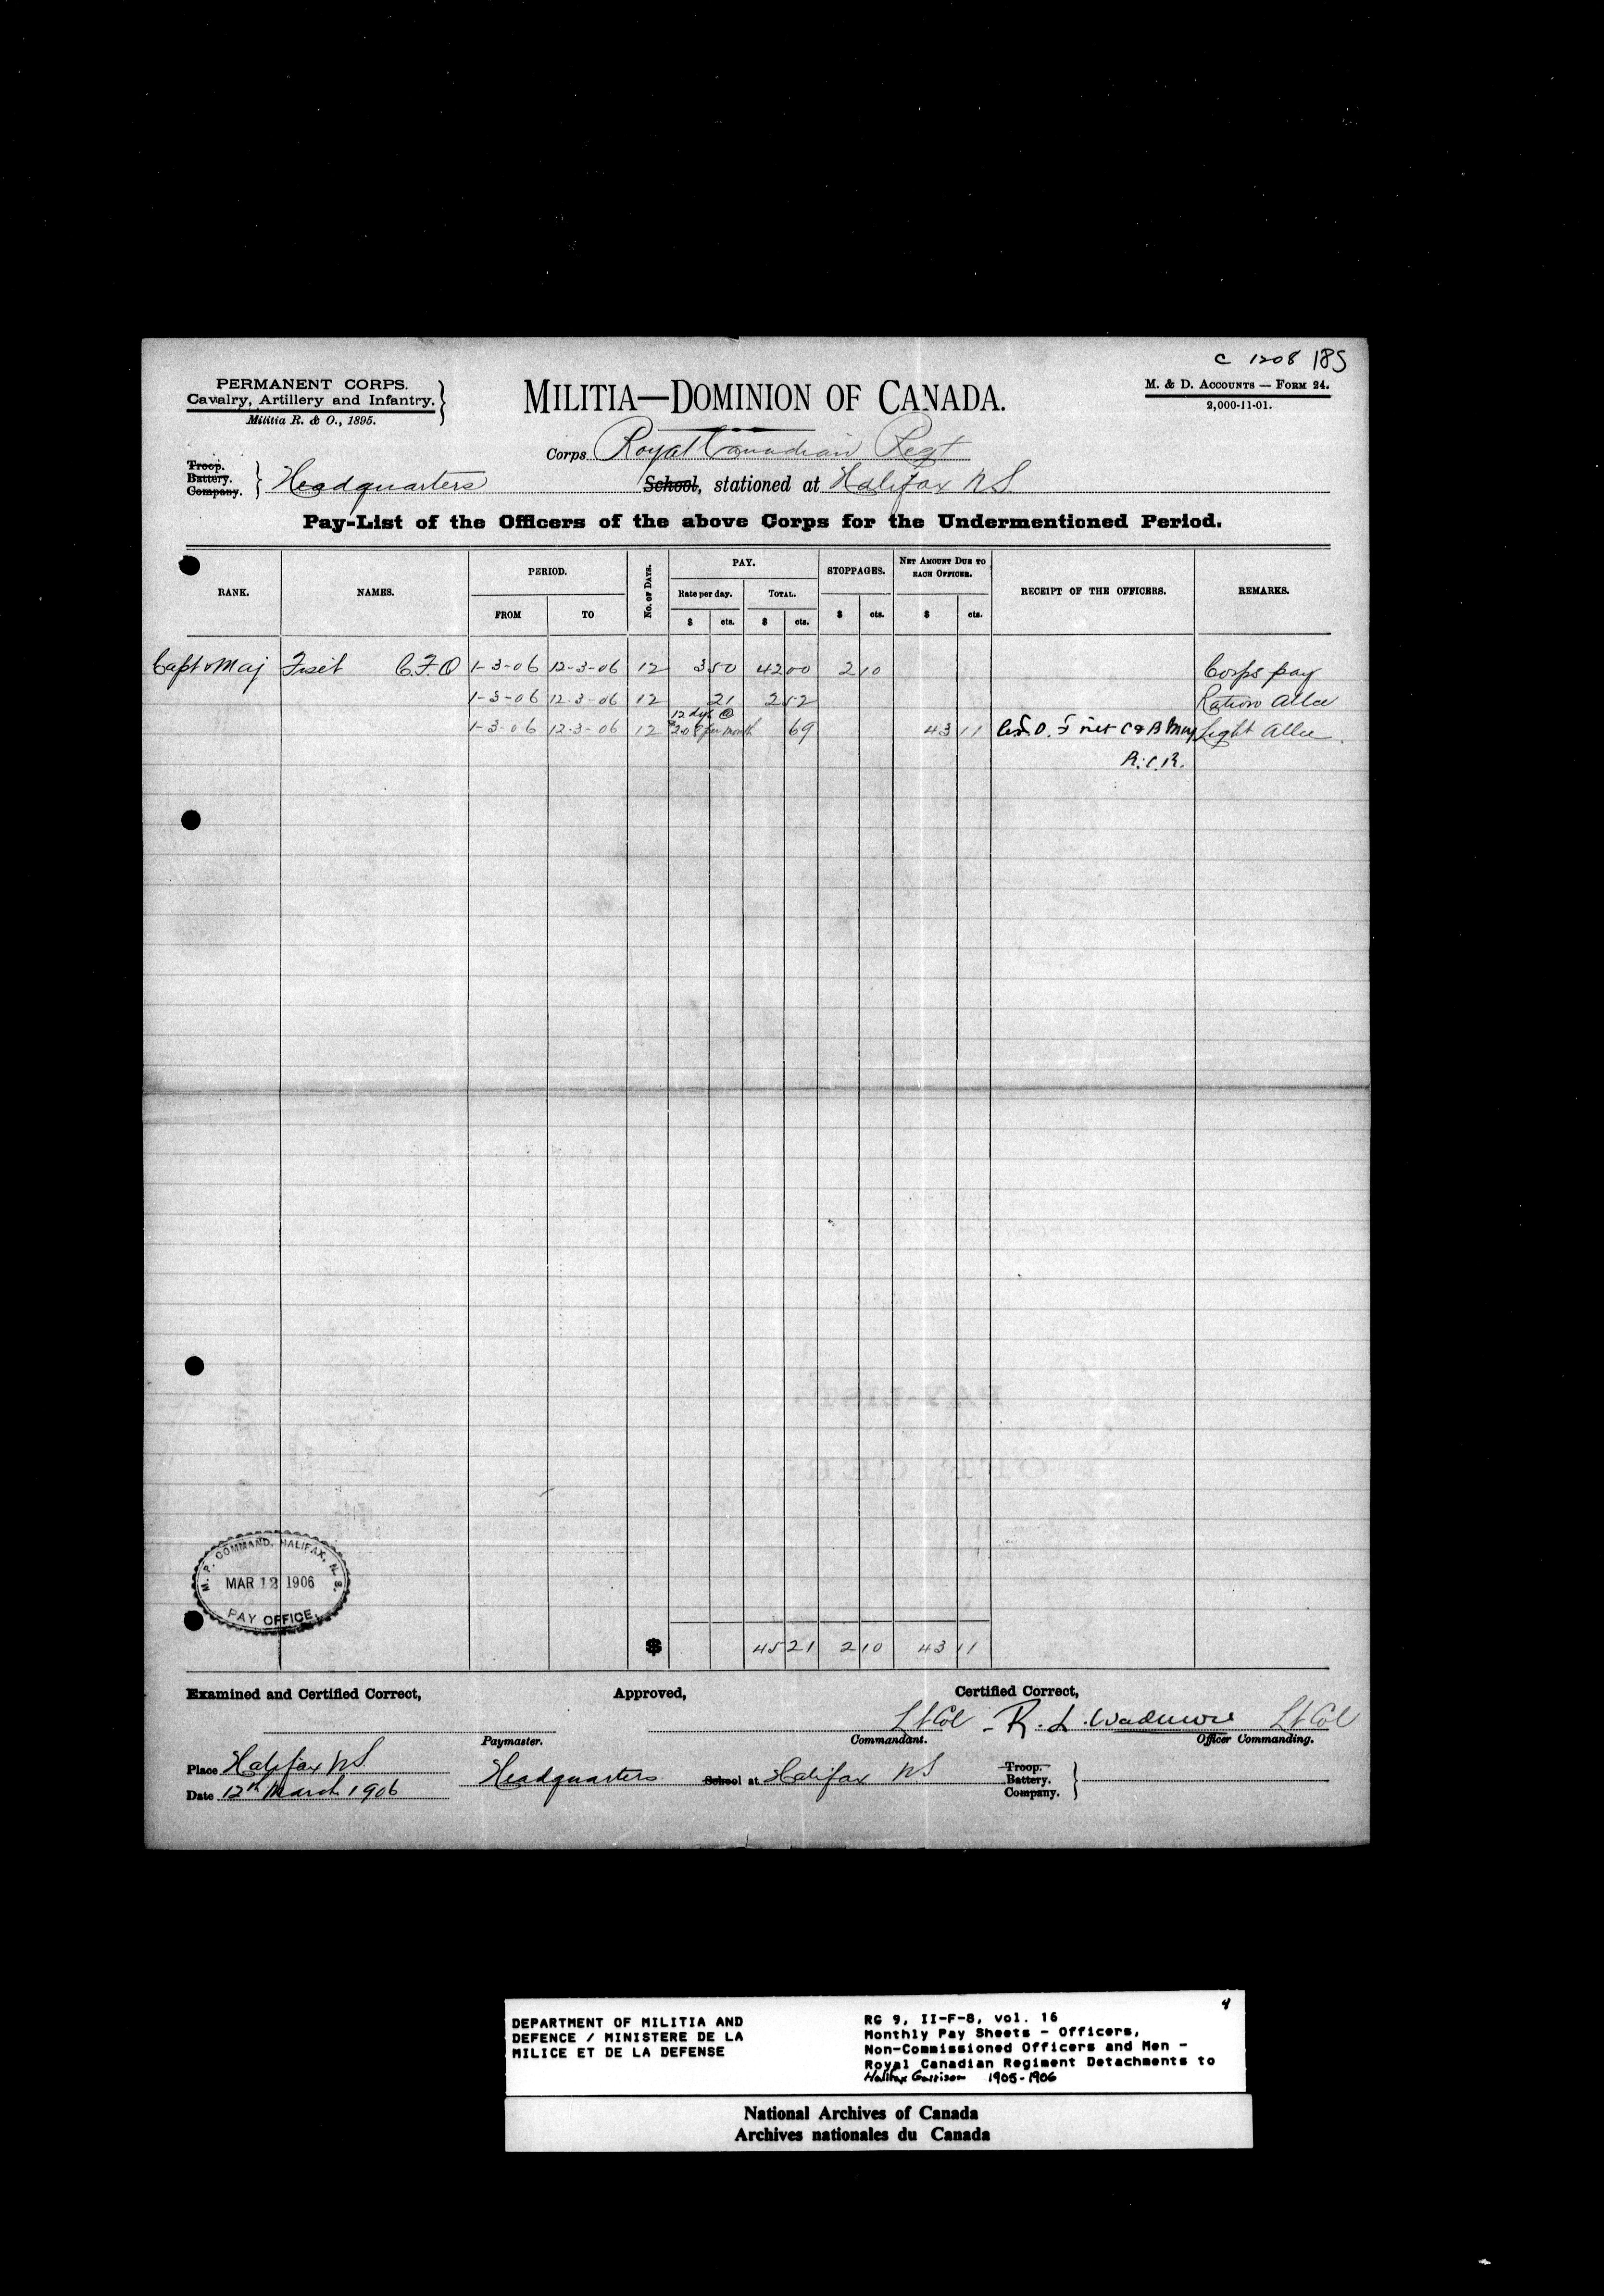 C 1208 185
PERMANENT CORPS.
Cavalry, Artillery and Infantry.
Militia R. & O., 1895.
MILITIA—DOMINION OF CANADA.
M. & D. ACCOUNTS — FORM 24.
2,000-11-01.
Corps Royal Canadian Regt
Troop.
Battery.
Company.
Headquarters School, stationed at Halifax NS
Pay-List of the Officers of the above Corps for the Undermentioned Period.
RANK. NAMES. PERIOD. FROM TO No. of Days. PAY. Rate per day. $ cts. TOTAL. $ cts. STOPPAGES. $ cts. NET AMOUNT DUE TO EACH OFFICER. $ cts. RECEIPT OF THE OFFICERS. REMARKS.
Capt & Maj Fiset C.F.O 1-3-06 12-3-06 12 3 50 42 00 2 10 Corps pay
1-3-06 12-3-06 12 21 2 52 Ration Allce
12 dys @
1-3-06 12-3-06 12 2.08 per month 69 43 11 Fiset Light Allce
R.C.R.
M. P. COMMAND, HALIFAX, N. S.
MAR 12 1906
PAY OFFICE
$ 45 21 2 10 43 11
Examined and Certified Correct, Approved, Certified Correct,
Lt Col R. L. Wadmore Lt Col
Paymaster. Commandant. Officer Commanding.
Place Halifax NS
Headquarters School at Halifax NS
Troop.
Battery.
Company.
Date 12th March 1906
4
DEPARTMENT OF MILITIA AND
DEFENCE / MINISTERE DE LA
MILICE ET DE LA DEFENSE
RG 9, II-F-8, vol. 16
Monthly Pay Sheets - Officers,
Non-Commissioned Officers and Men -
Royal Canadian Regiment Detachments to
Halifax Garrison 1905-1906
National Archives of Canada
Archives nationales du Canada